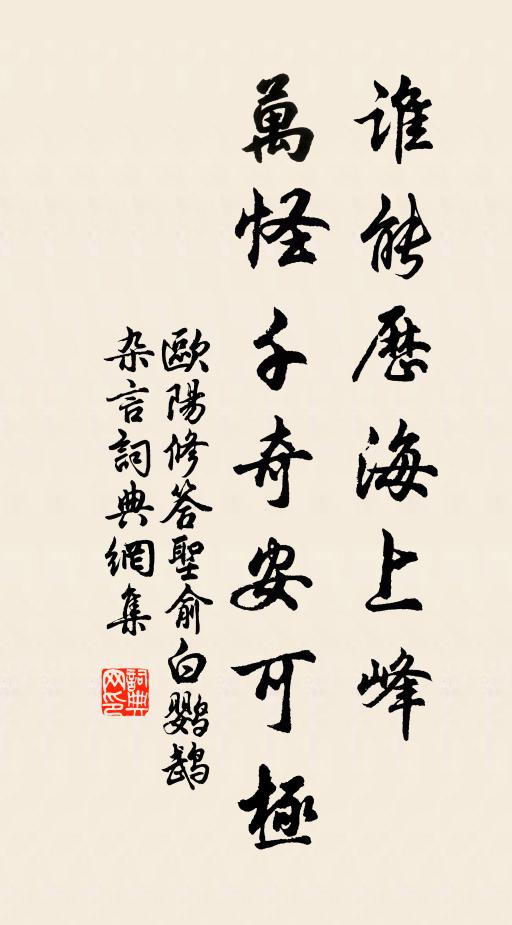 誰能歷海上峰
萬怪千奇安可極
歐陽修答聖俞白鸚鵡
杂言詞典網集
詞典网印